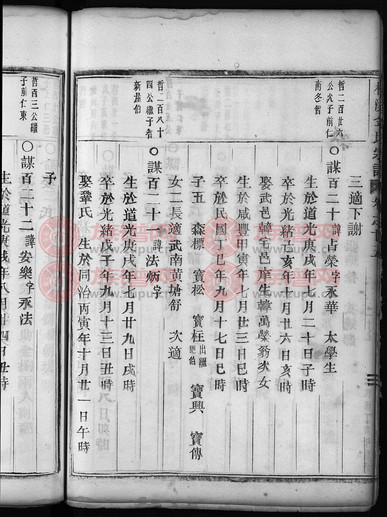 三適下謝
哲二百廿六
公戊子前仁
南冬哲
○謀百二十諱占榮字永華 太學生
生於道光庚戌年八月二十日子時
卒於光緒己亥年十月廿六日亥時
娶武邑韓宅邑庠生韓萬榮翁次女
生於咸豐甲寅年七月廿三日巳時
卒於民國丁巳年九月十七日巳時
子五 森標 寶松 寶柱出繼 寶興 寶傳
女二長適武南黃塘舒 次適
哲二百八十
四公繼子哲
新嶽伯
○謀百二十一諱法炳字
生於道光庚戌年十月廿九日戌時
卒於光緒戊子年九月十三日丑時
娶鞏氏 生於同治丙寅年十月廿一日午時
子
哲百三公繼
子前仁東
○謀百二十二諱安樂字永法
生於道光庚戌年八月廿四日丑時